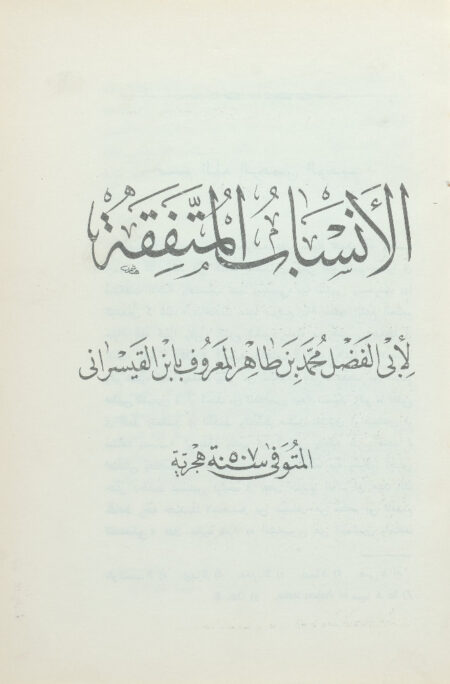 الأنساب المتفقة
لأبى الفضل محمد بن طاهر المعروف بابن القيسرانى
المتوفى سنة ٥٠٧ هجرية